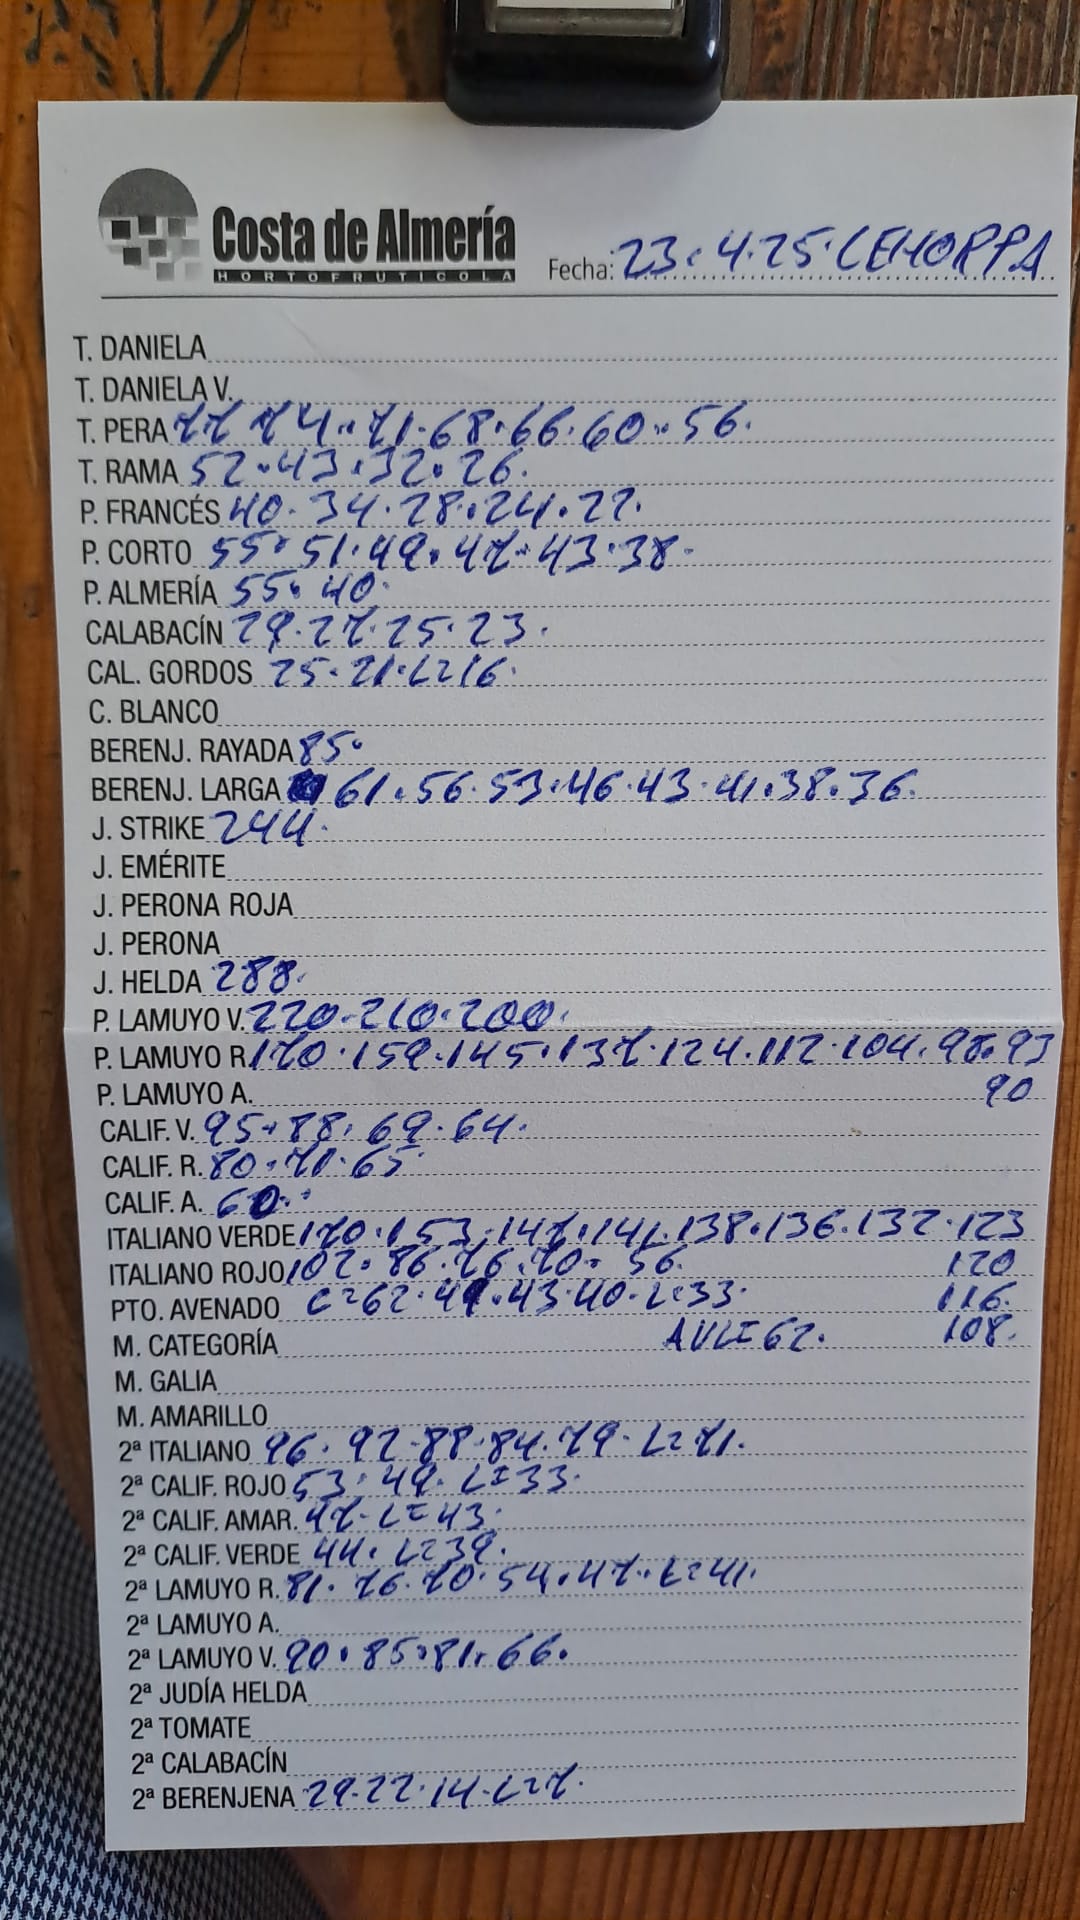 Costa de Almería
HORTOFRUTICOLA
Fecha: 23.4.25. CEHORPA
T. DANIELA
T. DANIELA V.
T. PERA 77 74. 71. 68. 66. 60. 56.
T. RAMA 52. 43. 32. 26.
P. FRANCÉS 40. 34. 28. 24. 22.
P. CORTO 55. 51. 49. 47. 43. 38.
P. ALMERÍA 55. 40.
CALABACÍN 29. 27. 25. 23.
CAL. GORDOS 25. 21. L=16.
C. BLANCO
BERENJ. RAYADA 85.
BERENJ. LARGA 61. 56. 53. 46. 43. 41. 38. 36.
J. STRIKE 244.
J. EMÉRITE
J. PERONA ROJA
J. PERONA
J. HELDA 288.
P. LAMUYO V. 220. 210. 200.
P. LAMUYO R. 170. 159. 145. 137. 124. 112. 104. 98. 93
P. LAMUYO A. 90
CALIF. V. 95. 88. 69. 64.
CALIF. R. 80. 71. 65
CALIF. A. 60.
ITALIANO VERDE 170. 153. 147. 141. 138. 136. 132. 123
ITALIANO ROJO 102. 86. 76. 70. 56. 120
PTO. AVENADO C=62. 49. 43. 40. L=33. 116.
M. CATEGORÍA AVL=62. 108.
M. GALIA
M. AMARILLO
2ª ITALIANO 96. 92. 88. 84. 79. L=71.
2ª CALIF. ROJO 53. 49. L=33.
2ª CALIF. AMAR. 47. L=43.
2ª CALIF. VERDE 44. L=39.
2ª LAMUYO R. 81. 76. 70. 54. 47. L=41.
2ª LAMUYO A.
2ª LAMUYO V. 90. 85. 81. 66.
2ª JUDÍA HELDA
2ª TOMATE
2ª CALABACÍN
2ª BERENJENA 29. 22. 14. L=7.